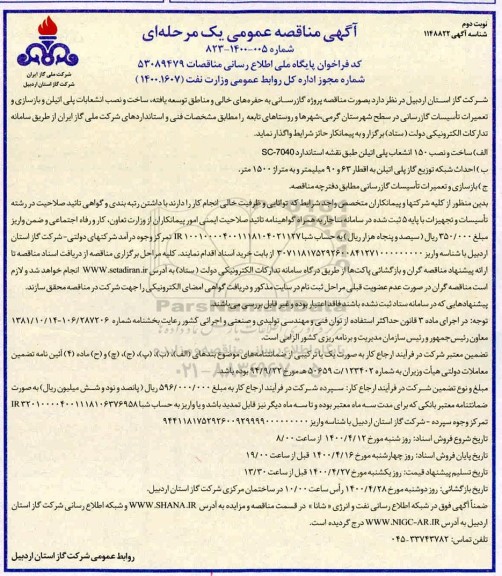 نوبت دوم
شناسه آگهی ۱۱۴۸۸۲۲
آگهی مناقصه عمومی یک مرحله‌ای
شماره ۰۰۵-۱۴۰۰-۸۲۳
کد فراخوان پایگاه ملی اطلاع رسانی مناقصات ۵۳۰۸۹۴۷۹
شماره مجوز اداره کل روابط عمومی وزارت نفت (۱۴۰۰.۱۶۰۷)
شرکت ملی گاز ایران
شرکت گاز استان اردبیل
شرکت گاز استان اردبیل در نظر دارد بصورت مناقصه پروژه گازرسانی به حفره‌های خالی و مناطق توسعه یافته، ساخت و نصب انشعابات پلی اتیلن و بازسازی و
تعمیرات تأسیسات گازرسانی در سطح شهرستان گرمی-شهرها و روستاهای تابعه را مطابق مشخصات فنی و استانداردهای شرکت ملی گاز ایران از طریق سامانه
تدارکات الکترونیکی دولت (ستاد) برگزار و به پیمانکار حائز شرایط واگذار نماید.
الف) ساخت و نصب ۱۵۰ انشعاب پلی اتیلن طبق نقشه استاندارد SC-7040
ب) احداث شبکه توزیع گاز پلی اتیلن به اقطار ۶۳ و ۹۰ میلیمتر و به متراژ ۱۵۰۰ متر.
ج) بازسازی و تعمیرات تأسیسات گازرسانی مطابق دفترچه مناقصه.
بدین منظور از کلیه شرکتها و پیمانکاران متخصص واجد شرایط که توانایی و ظرفیت خالی انجام کار را دارند با داشتن رتبه بندی و گواهی تائید صلاحیت در رشته
تأسیسات و تجهیزات با پایه ۵ ثبت شده در سامانه ساجار به همراه گواهینامه تائید صلاحیت ایمنی امور پیمانکاران از وزارت تعاون، کار و رفاه اجتماعی و ضمن واریز
مبلغ ۳۵۰/۰۰۰ ریال (سیصد و پنجاه هزار ریال) به حساب شبا تمرکز وجوه درآمد شرکتهای دولتی-شرکت گاز استان
اردبیل با شناسه واریز از بابت خرید اسناد اقدام نمایند. کلیه مراحل برگزاری مناقصه از دریافت اسناد مناقصه تا
ارائه پیشنهاد مناقصه گران و بازگشائی پاکت‌ها از طریق درگاه سامانه تدارکات الکترونیکی دولت (ستاد) به آدرس WWW.setadiran.ir انجام خواهد شد و لازم
است مناقصه گران در صورت عدم عضویت قبلی مراحل ثبت نام در سایت مذکور و دریافت گواهی امضای الکترونیکی را جهت شرکت در مناقصه محقق سازند.
پیشنهادهایی که در سامانه ستاد ثبت نشده باشند فاقد اعتبار بوده و غیر قابل بررسی می‌باشند.
توجه: در اجرای ماده ۳ قانون حداکثر استفاده از توان فنی و مهندسی تولیدی و صنعتی و اجرائی کشور رعایت بخشنامه شماره ۱۰۶/۲۸۷۲۰۶-۱۳۸۱/۱۰/۱۴
معاون رئیس جمهور و رئیس سازمان مدیریت و برنامه ریزی کشور الزامی است.
تضمین معتبر شرکت در فرآیند ارجاع کار به صورت یک یا ترکیبی از ضمانتنامه‌های موضوع بندهای (الف)، (ب)، (پ)، (ج)، (چ) و (ح) ماده (۴) آئین نامه تضمین
معاملات دولتی هیأت وزیران به شماره ۱۲۳۴۰۲/ت۵۰۶۵۹هـ مورخ ۹۴/۹/۲۲ بوده باشد.
مبلغ و نوع تضمین شرکت در فرآیند ارجاع کار: سپرده شرکت در فرآیند ارجاع کار به مبلغ ۵۹۶/۰۰۰/۰۰۰ ریال (پانصد و نود و شش میلیون ریال) به صورت
ضمانتنامه معتبر بانکی که برای مدت سه ماه معتبر بوده و تا سه ماه دیگر نیز قابل تمدید باشد و یا واریز به حساب شبا
تمرکز وجوه سپرده - شرکت گاز استان اردبیل با شناسه واریز
تاریخ شروع فروش اسناد: روز شنبه مورخ ۱۴۰۰/۴/۱۲ از ساعت ۸/۰۰
تاریخ پایان فروش اسناد: روز چهارشنبه مورخ ۱۴۰۰/۴/۱۶ قبل از ساعت ۱۹/۰۰
تاریخ تسلیم پیشنهاد قیمت: روز یکشنبه مورخ ۱۴۰۰/۴/۲۷ قبل از ساعت ۱۳/۳۰
تاریخ بازگشائی: روز دوشنبه مورخ ۱۴۰۰/۴/۲۸ رأس ساعت ۱۰/۰۰ در ساختمان مرکزی شرکت گاز استان اردبیل.
ضمناً آگهی فوق در شبکه اطلاع رسانی نفت و انرژی «شانا» در قسمت مناقصه و مزایده به آدرس WWW.SHANA.IR و شبکه اطلاع رسانی شرکت گاز استان
اردبیل به آدرس WWW.NIGC-AR.IR درج گردیده است.
تلفن تماس: ۳۳۷۴۳۷۸۲-۰۴۵
روابط عمومی شرکت گاز استان اردبیل